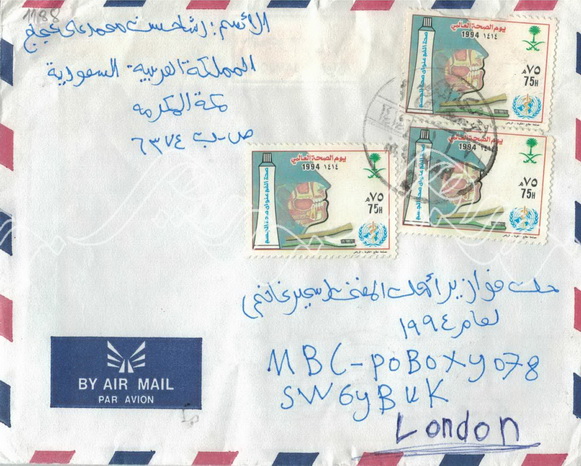 1188
الأسم: رشا حسن محمد علي
المملكة العربية السعودية
مكة المكرمه
ص.ب ٦٣٧٤
يوم الصحة العالمي
1994 ١٤١٤
٧٥ هـ
75H
يوم الصحة العالمي
1994 ١٤١٤
٧٥ هـ
75H
يوم الصحة العالمي
1994 ١٤١٤
٧٥ هـ
75H
حلت فوازير
لعام ١٩٩٤
MBC-POBOXY078
SW6yBUK
London
BY AIR MAIL
PAR AVION